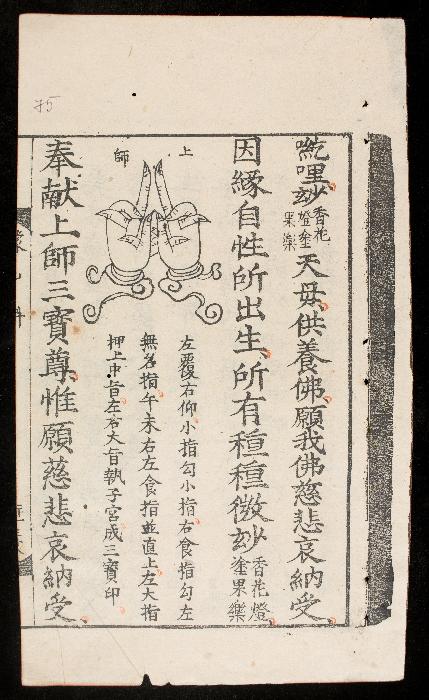 㘕哩玅香花燈塗果樂天毋供養佛願我佛慈悲哀納受
因緣自性所出生所有種種微玅香花燈塗果樂
上師
左覆右仰小指勾小指右食指勾左
無名指午未右左食指並直上左大指
押上中旨左右大旨執子宮成三寳印
奉献上師三寳尊惟願慈悲哀納受
75